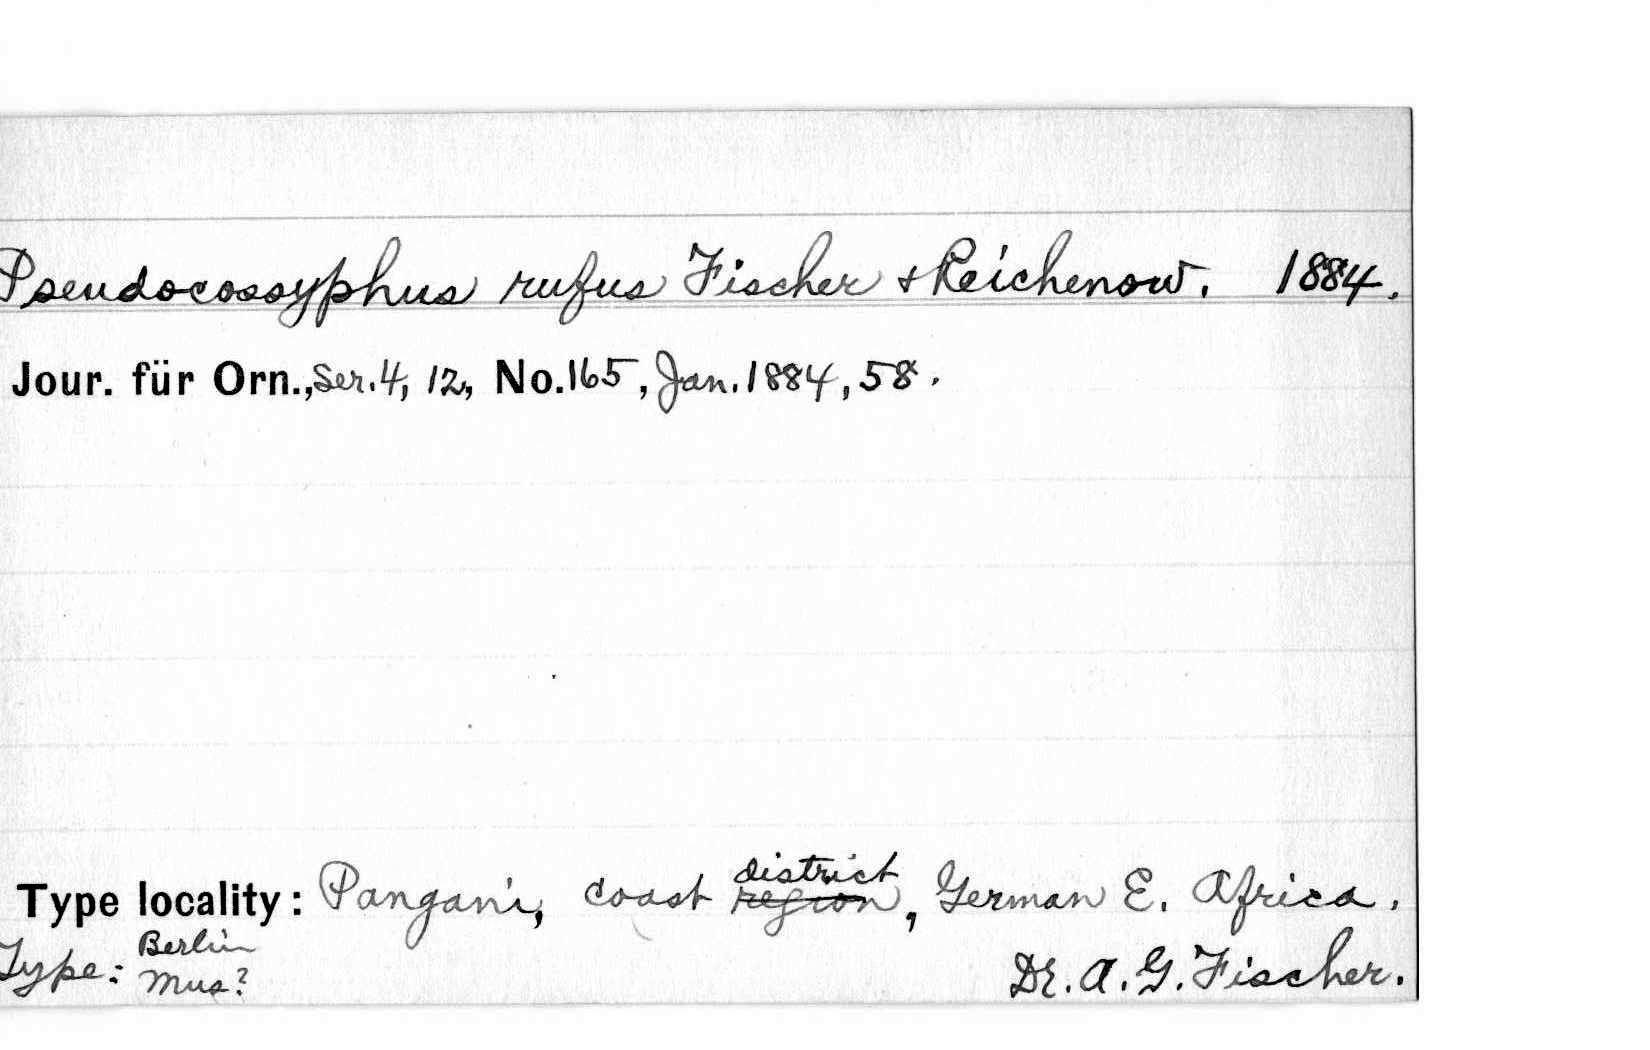 Pseudocossyphus rufus Fischer & Reichenow. 1884.
Jour. für Orn., Ser. 4, 12, No. 165, Jan. 1884, 58.
district
Type locality: Pangani, coast region, German E. Africa.
Berlin
Type: Mus? Dr. A. G. Fischer.